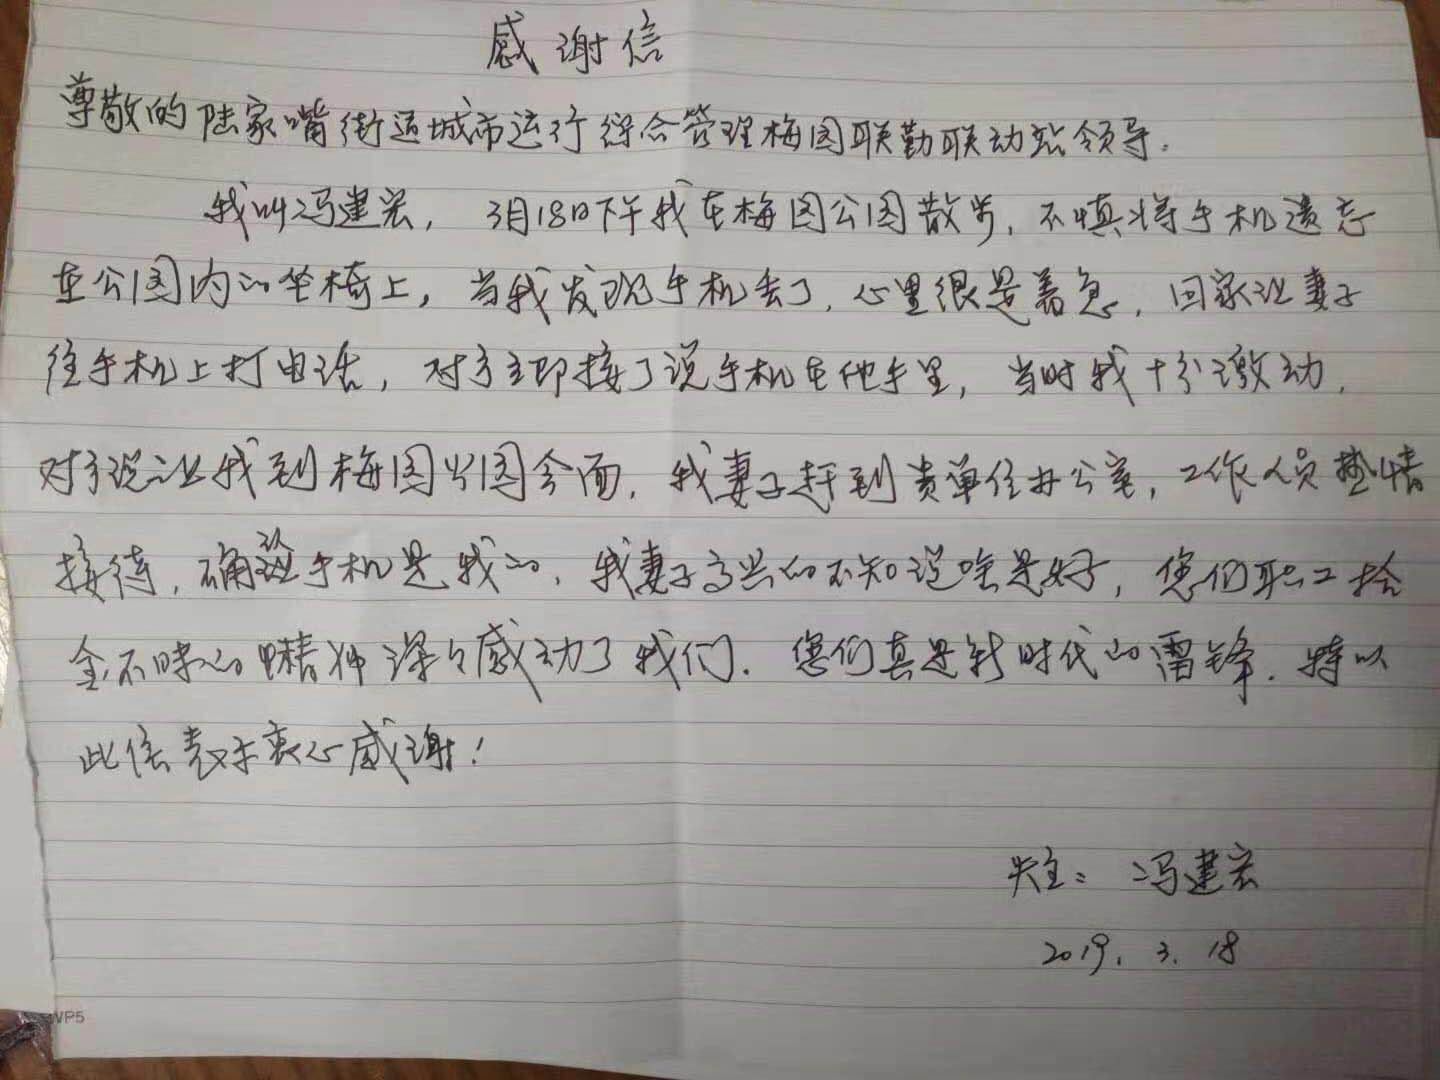 感谢信
尊敬的陆家嘴街道城市运行综合管理梅园联勤联动站领导:
我叫冯建宏, 3月18日下午我在梅园公园散步, 不慎将手机遗忘
在公园内的坐椅上, 当我发现手机丢了, 心里很是着急, 回家让妻子
往手机上打电话, 对方立即接了说手机在他手里, 当时我十分激动,
对方说让我到梅园公园会面, 我妻子赶到贵单位办公室, 工作人员热情
接待, 确认手机是我的, 我妻子高兴的不知说啥是好, 您们职工拾
金不昧的精神深々感动了我们. 您们真是新时代的雷锋. 特以
此信表示衷心感谢!
失主: 冯建宏
2019. 3. 18
WP5